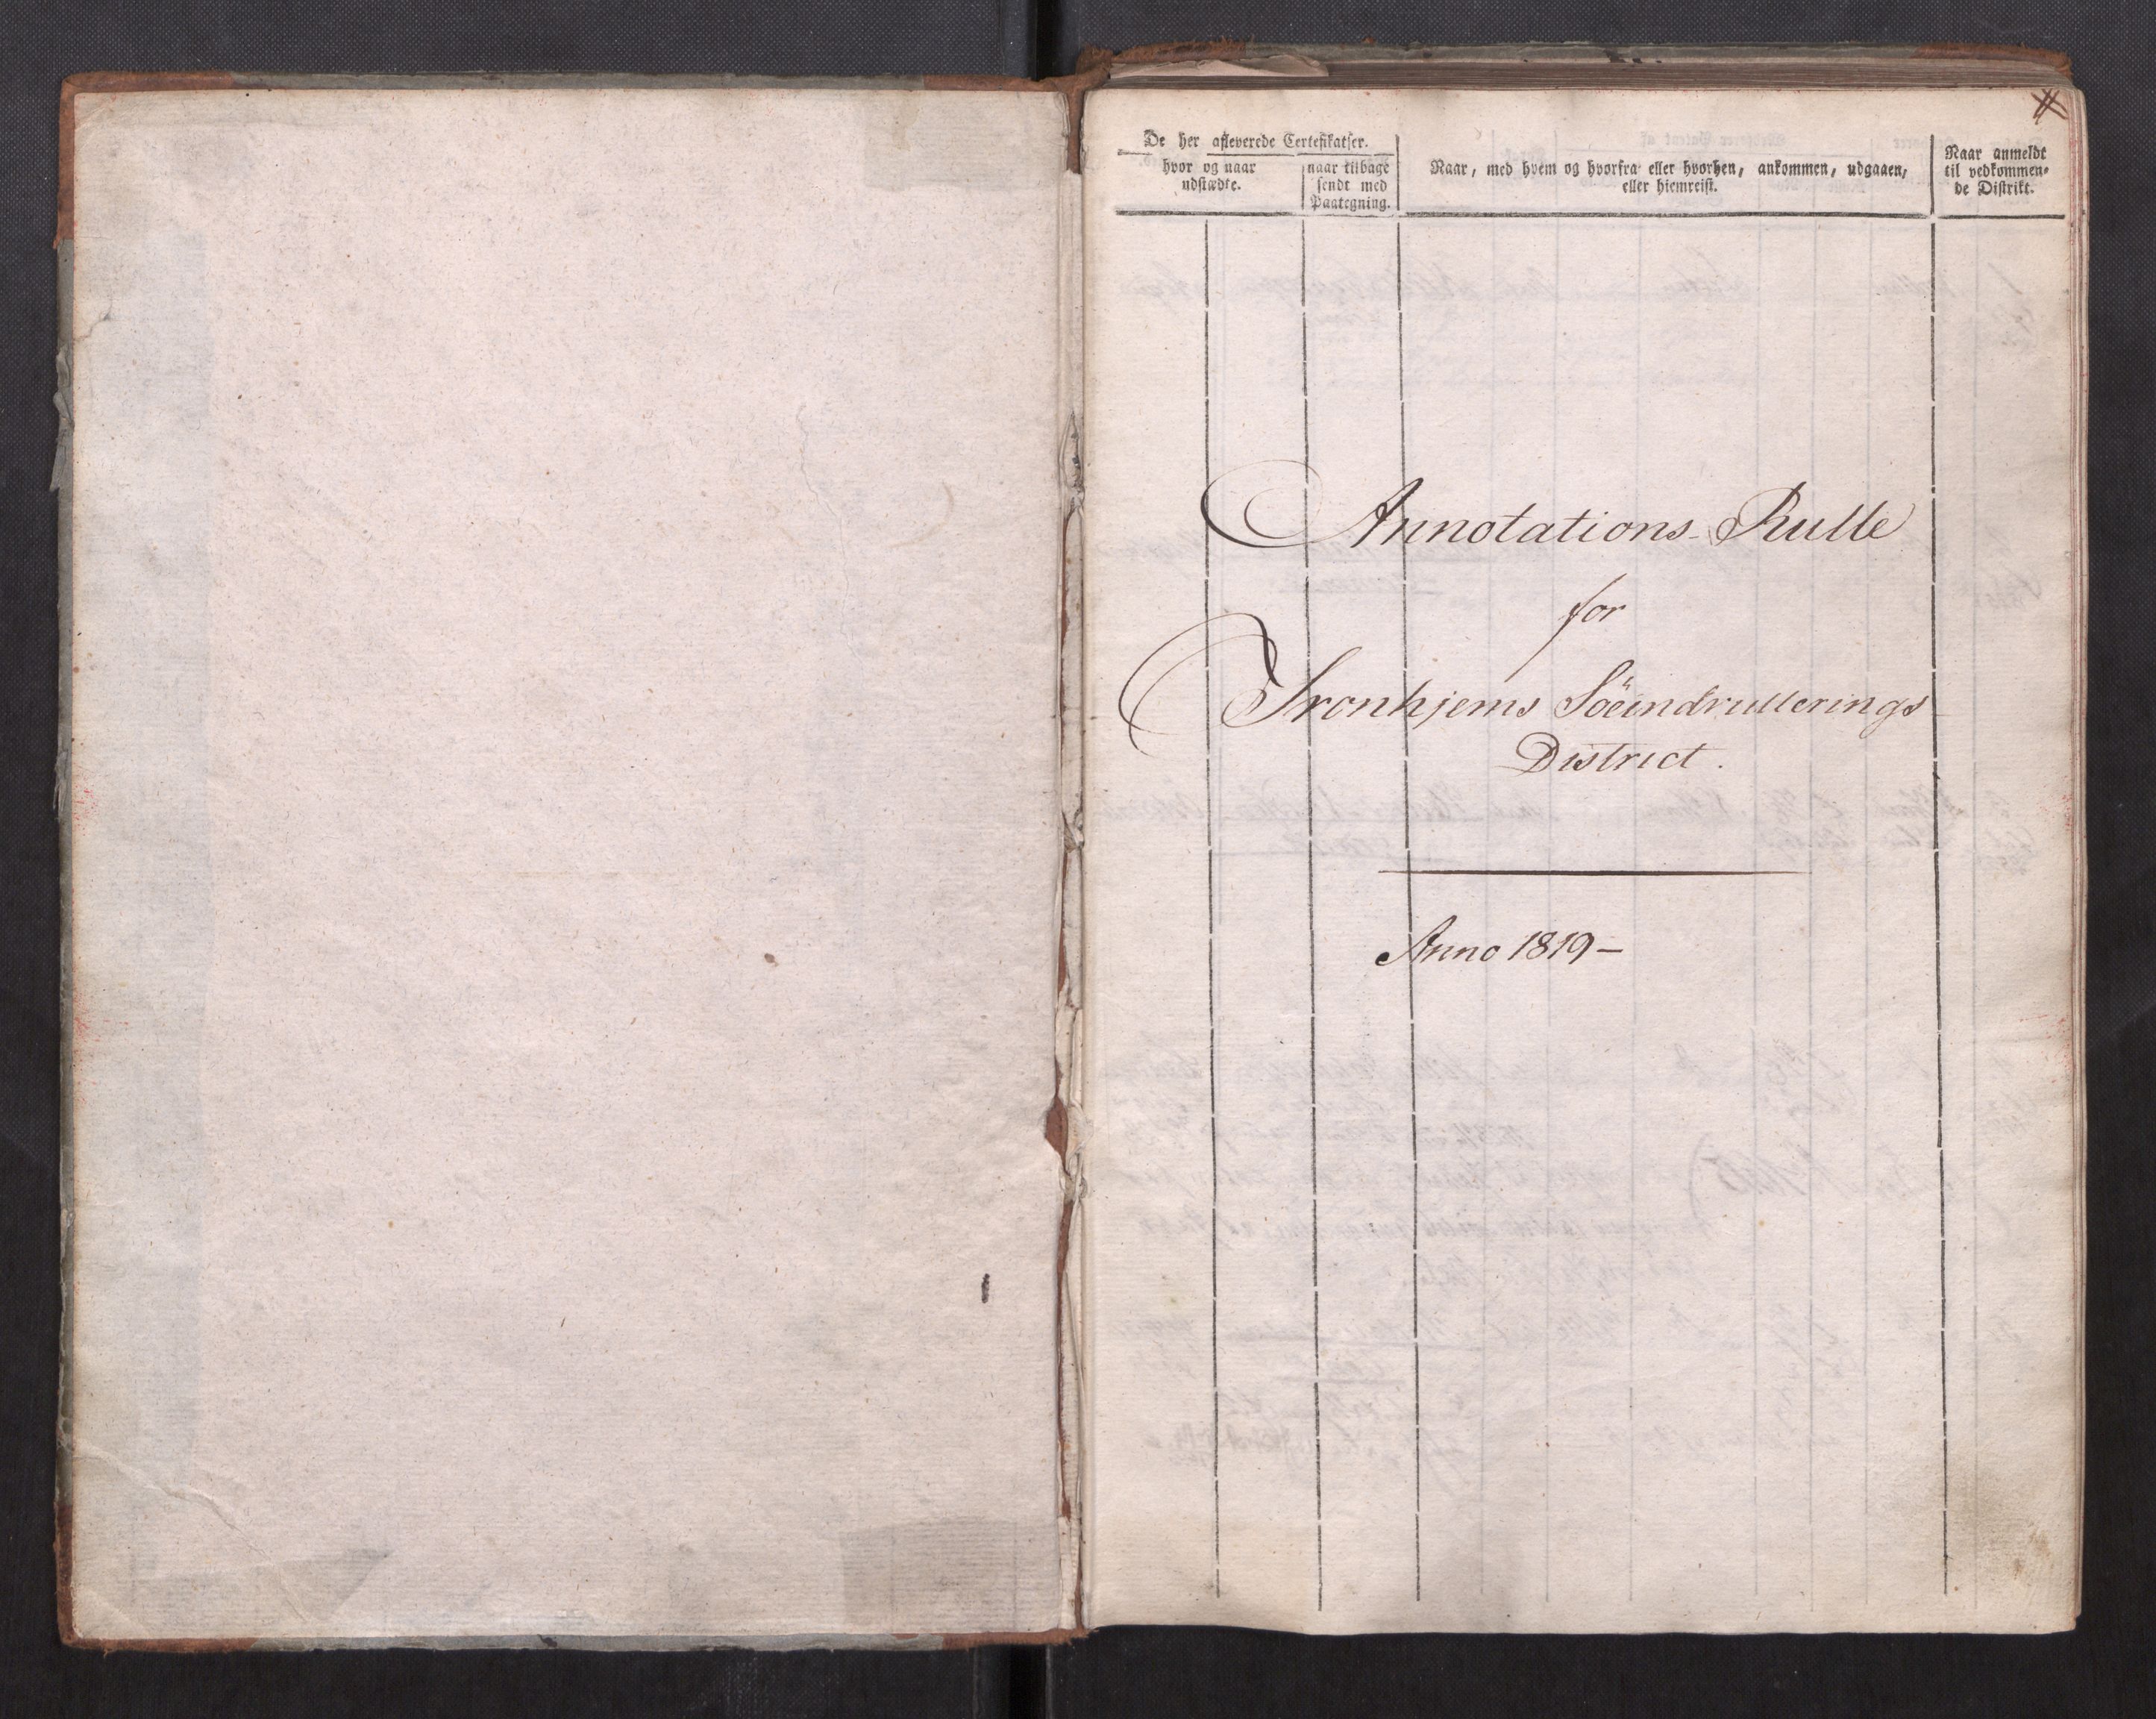 De her afleverede Certefikatser.
hvor og naar
udstædte.
naar tilbage
sendt med
Paategning.
Naar, med hvem og hvorfra eller hvorhen, ankommen, udgaaen,
eller hiemreist.
Naar anmeldt
til vedkommen-
de Distrikt.
Annotations-Rulle
for
Tronhjems Söeindrullerings
District.
Anno 1819-